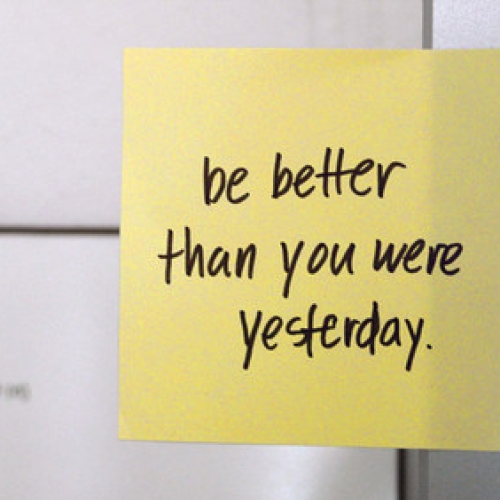 be better
than you were
yesterday.